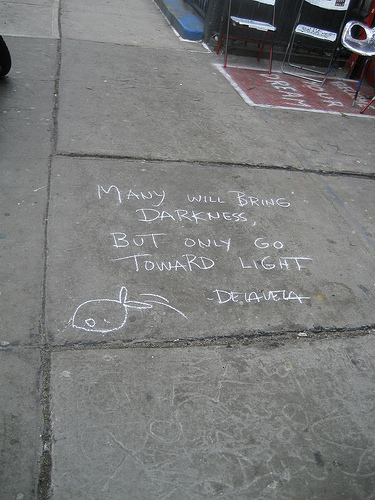 MANY WILL BRING
DARKNESS,
BUT ONLY GO
TOWARD LIGHT
- DELAVEGA